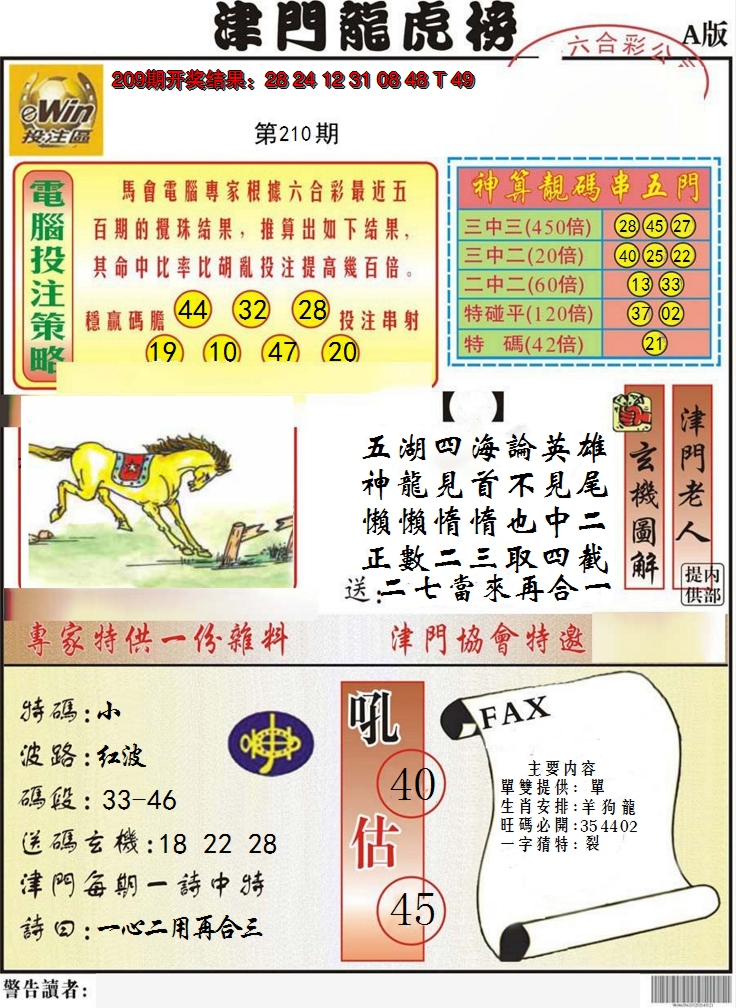 津門龍虎榜
六合彩公
A版
209期开奖结果：28 24 12 31 08 48 T 49
eWin
投注區
第210期
電腦投注策略
馬會電腦專家根據六合彩最近五
百期的攪珠结果，推算出如下结果，
其命中比率比胡亂投注提高幾百倍。
穩贏碼膽 44 32 28 投注串射
19 10 47 20
神算靚碼串五門
三中三(450倍) 28 45 27
三中二(20倍) 40 25 22
二中二(60倍) 13 33
特碰平(120倍) 37 02
特 碼(42倍) 21
【 】
五湖四海論英雄
神龍見首不見尾
懶懶惰惰也中二
正數二三取四截
送：二七當來再合一
玄機圖解
津門老人
内部提供
專家特供一份雜料
津門協會特邀
特碼:小
波路:红波
碼段:33-46
送碼玄機:18 22 28
津門每期一詩中特
詩曰:一心二用再合三
吼
40
估
45
FAX
主要内容
單雙提供：單
生肖安排:羊狗龍
旺碼必開:354402
一字猜特:裂
警告讀者: